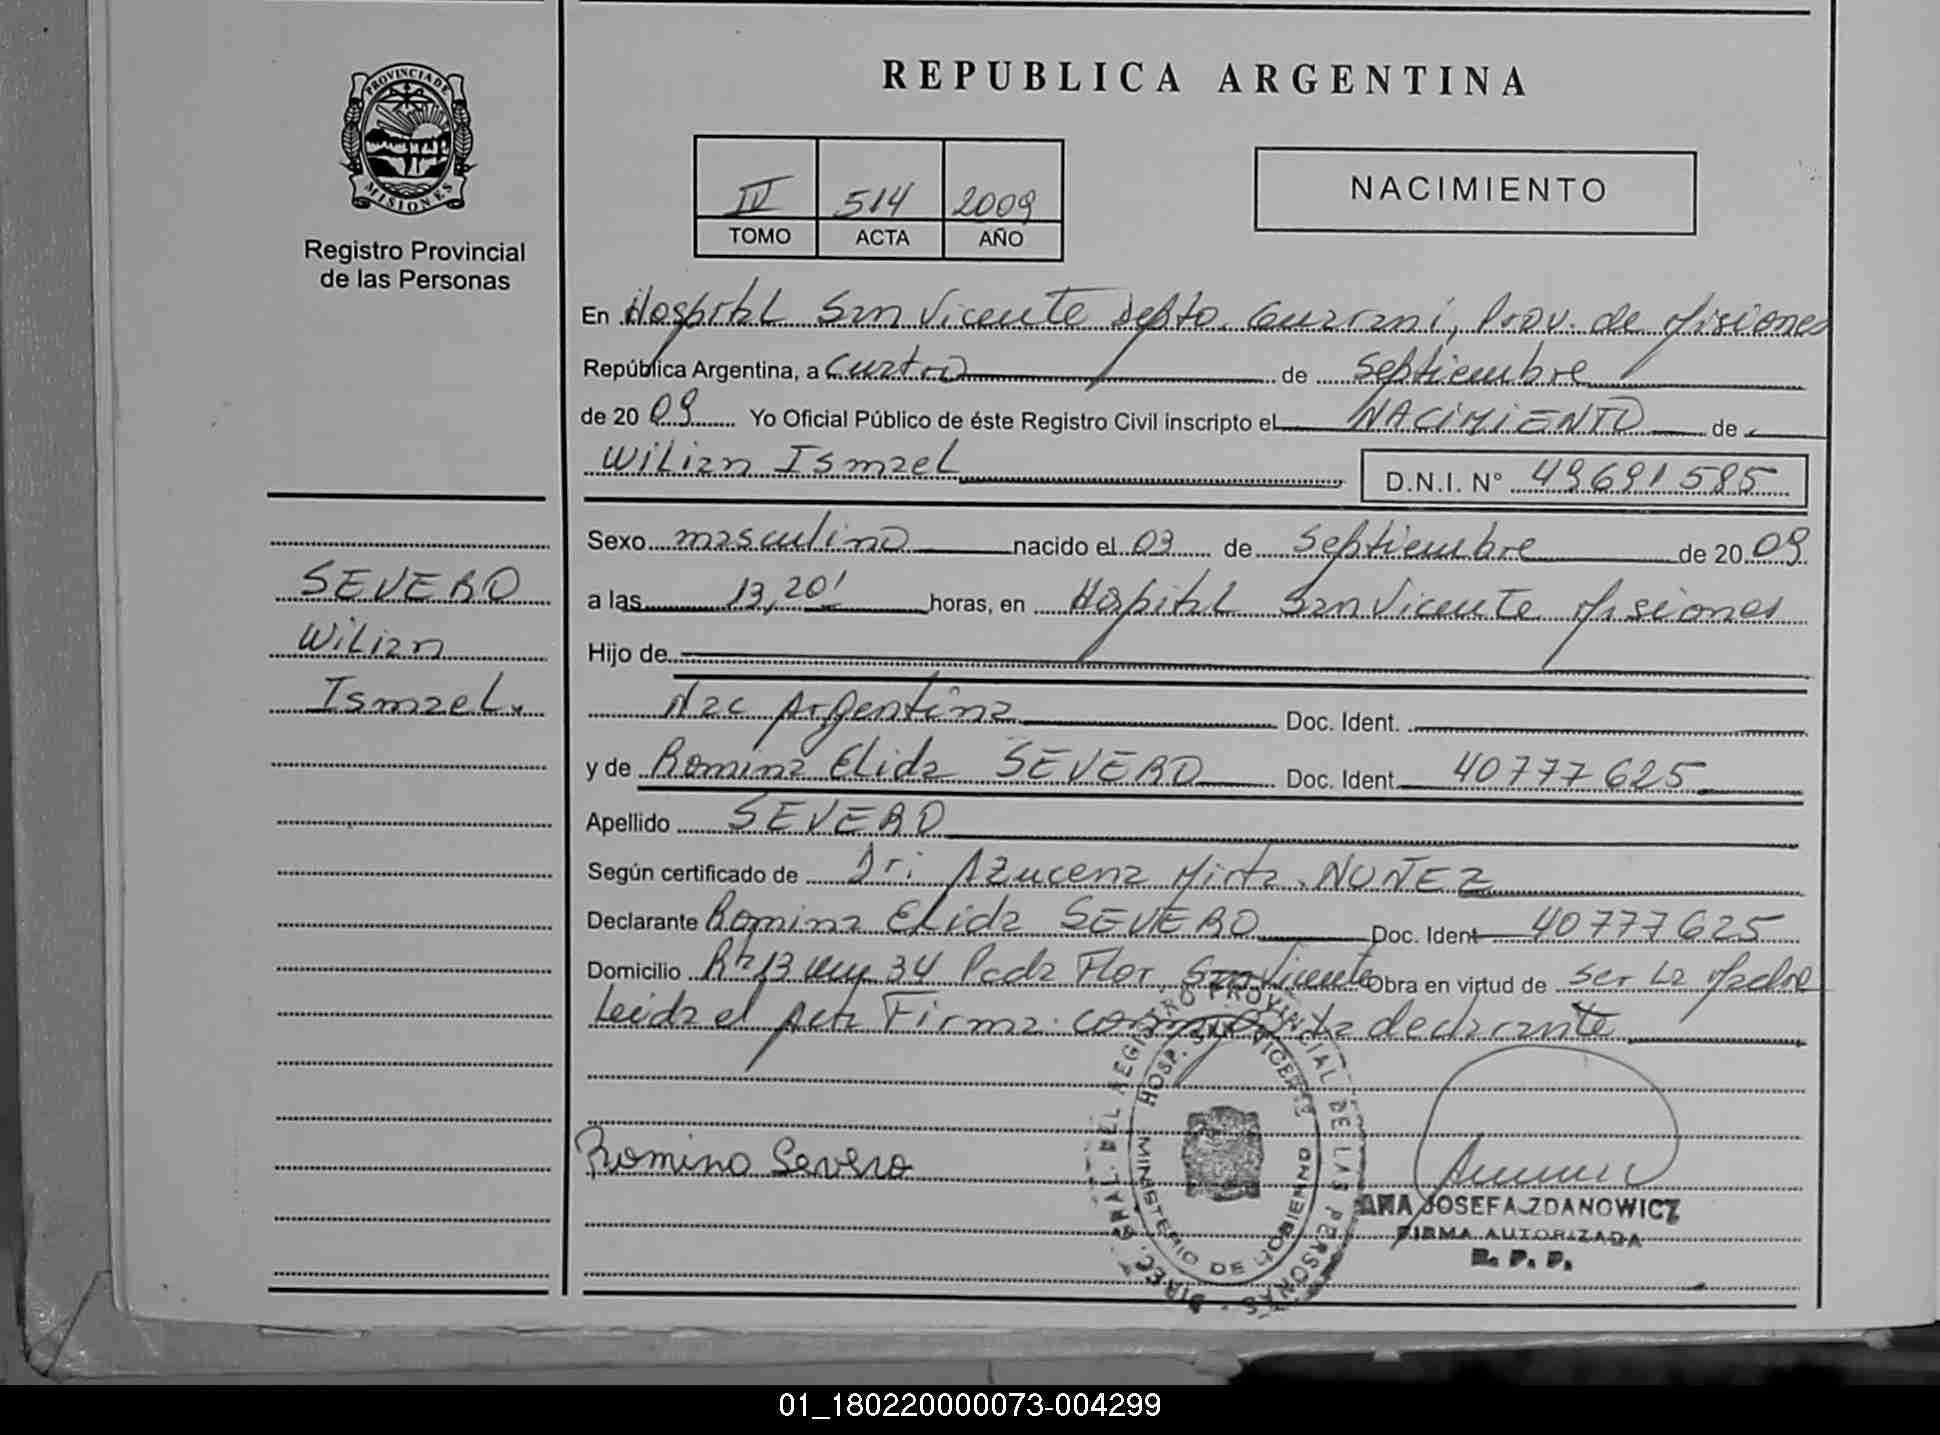 PROVINCIA DE
MISIONES
Registro Provincial
de las Personas
SEVERO
Wilian
Ismael.
REPUBLICA ARGENTINA
IV 514 2009
TOMO ACTA AÑO
NACIMIENTO
En Hospital San Vicente Depto. Guarani, Prov. de Misiones
República Argentina, a Cuatro de Septiembre
de 20 09 Yo Oficial Público de éste Registro Civil inscripto el NACIMIENTO de
Wilian Ismael D.N.I. N° 49691585
Sexo masculino nacido el 03 de Septiembre de 20 09
a las 13,20' horas, en Hospital San Vicente Misiones
Hijo de
Nac Argentina Doc. Ident.
y de Romina Elida SEVERO Doc. Ident. 40777625
Apellido SEVERO
Según certificado de Dr: Azucena Mirta NUÑEZ
Declarante Romina Elida SEVERO Doc. Ident 40777625
Domicilio Rta 13 34 Pada Flor, San Vicente Obra en virtud de ser La Madre
Leida el Acta Firma conmigo La declarante
Romina Severo
DIREC. GRAL. DEL REGISTRO PROVINCIAL DE LAS PERSONAS
HOSP. SAN VICENTE
MINISTERIO DE GOBIERNO
ANA JOSEFA ZDANOWICZ
FIRMA AUTORIZADA
R. P. P.
01_180220000073-004299